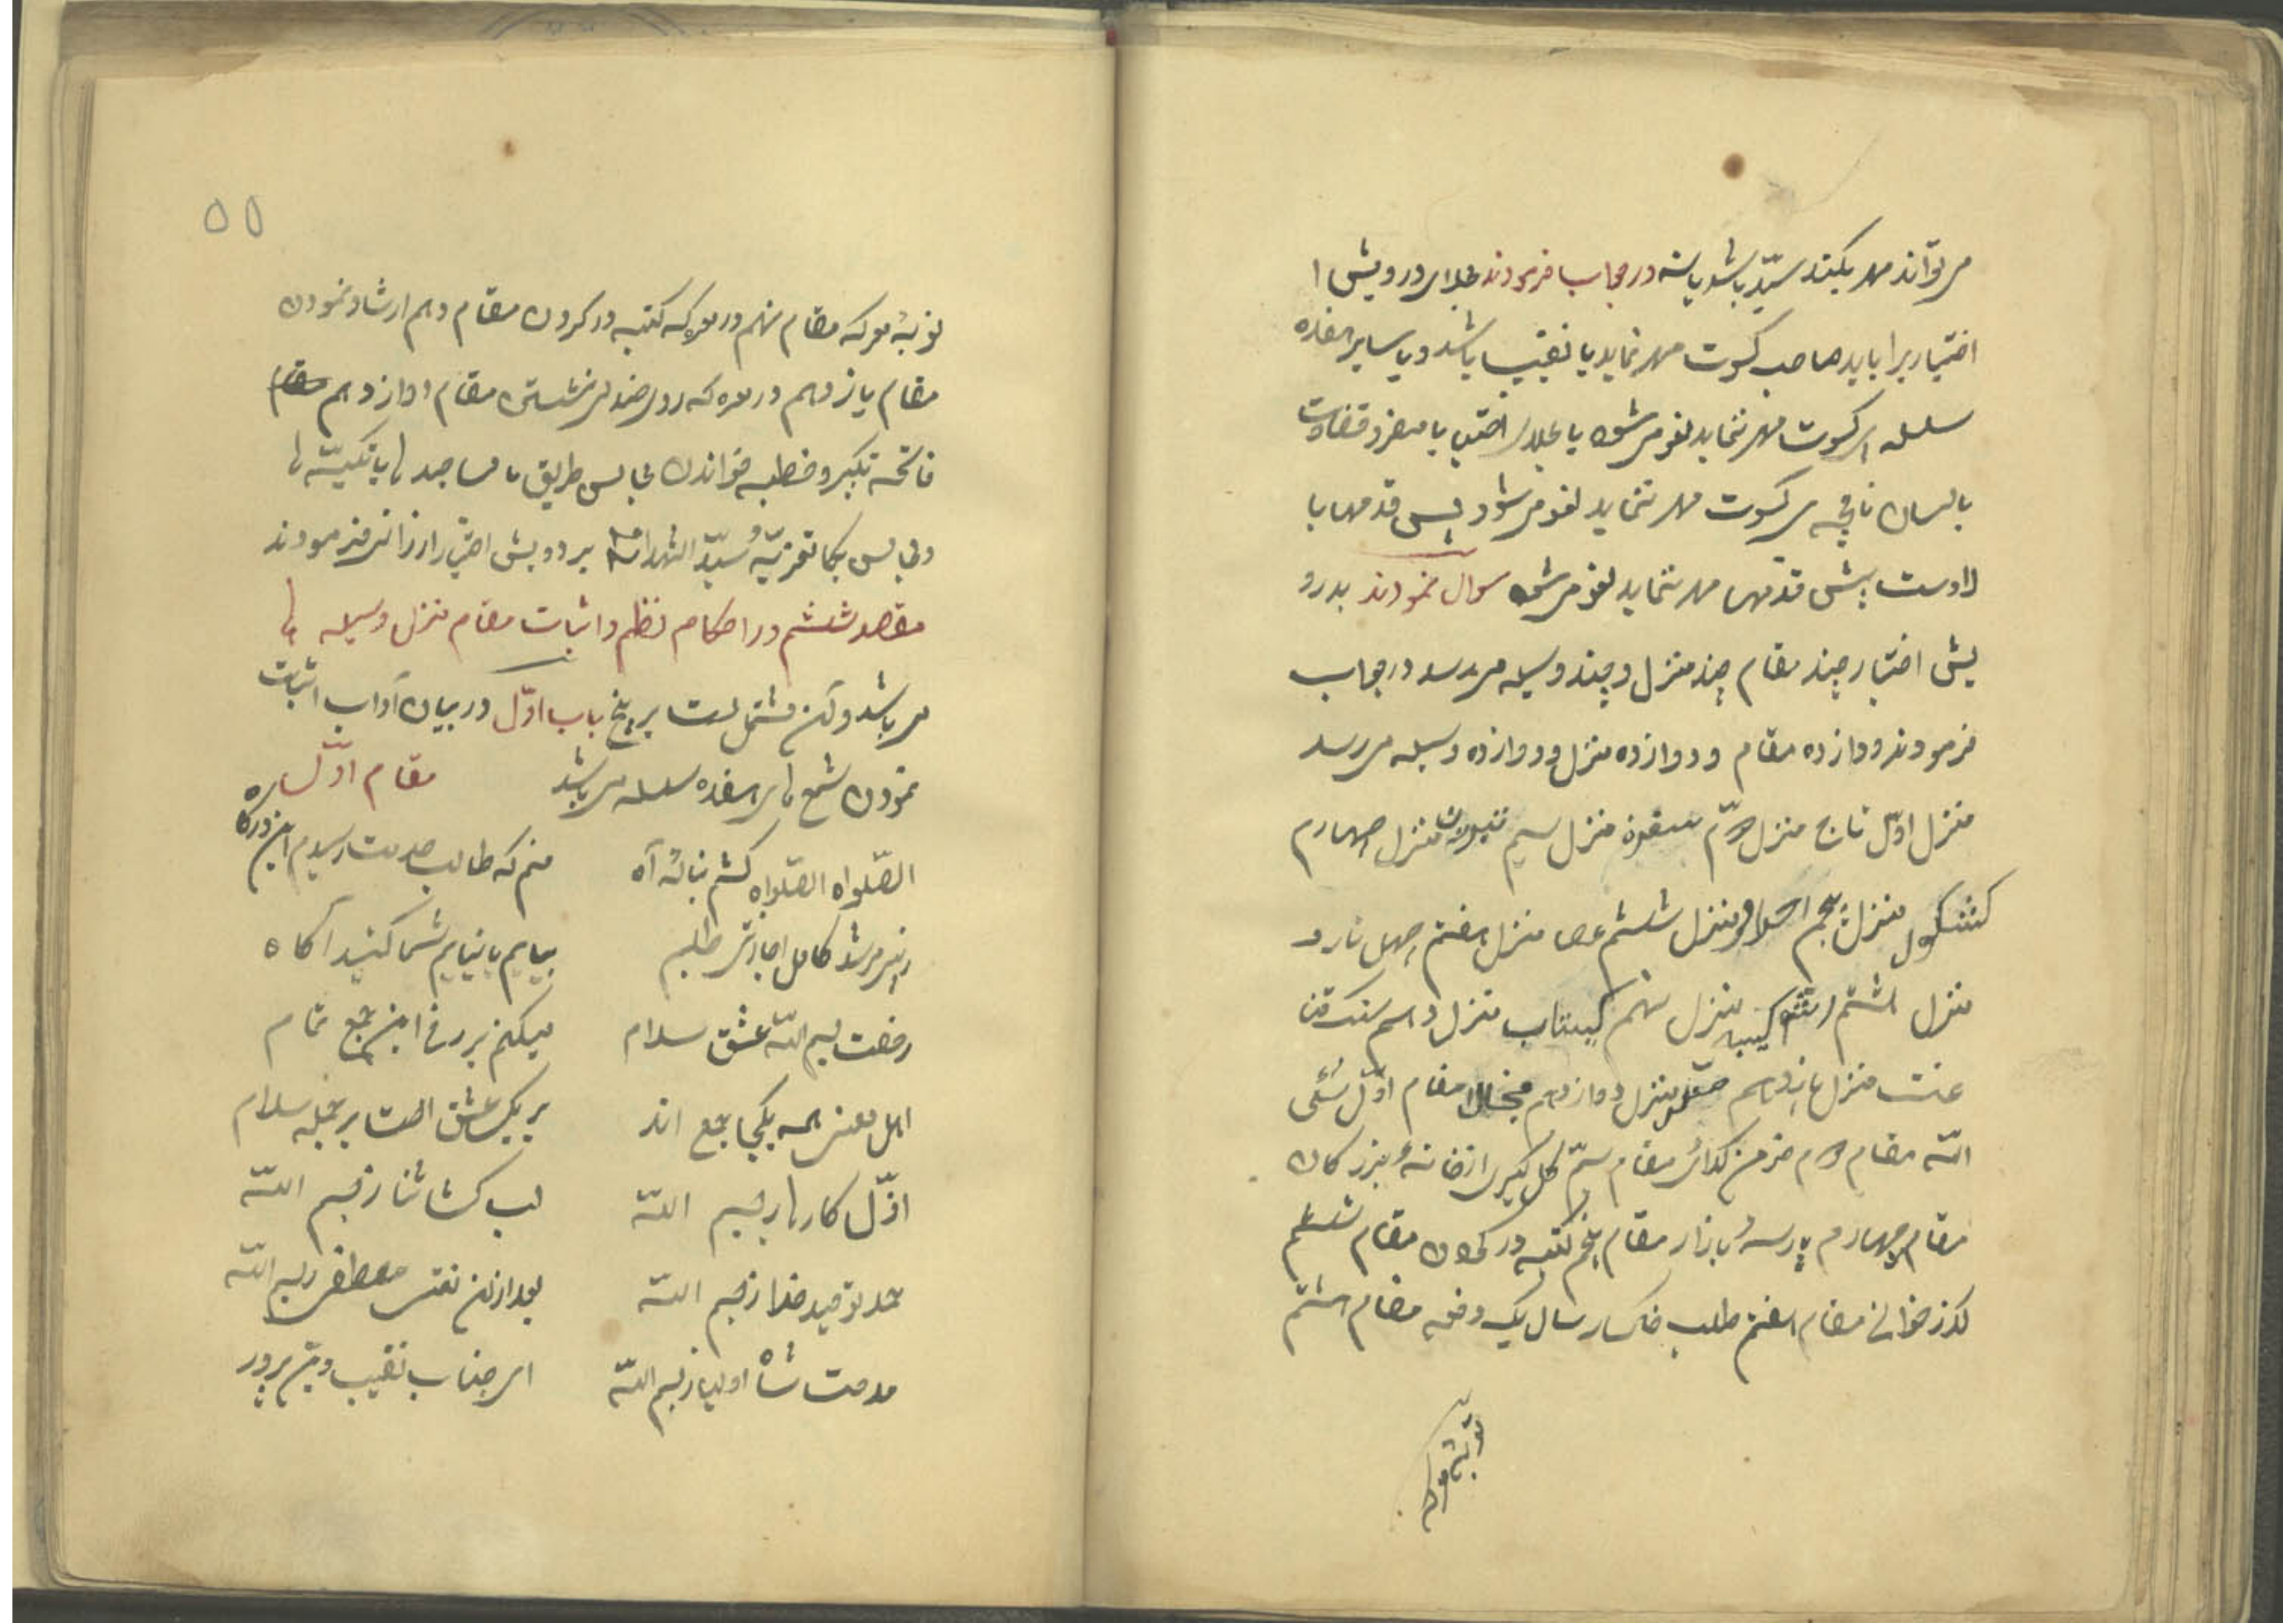 می تواند مهر بکند سیّد باشد یا نه در جواب فرمودند جلدار درویش ا
اختیار را باید صاحب کسوت مهر نماید یا نقیب باشد و یا سایر هفده
سلسله اگر کسوت مهر ننماید لغو می شود یا
کسوت مهر ننماید لغو می شود پس قدمها با
پیش قدمها مهر ننماید لغو می شود سوال نمودند بدرو
یش اختیار چند مقام چند منزل و چند وسیله می رسد در جواب
فرمودند دوازده مقام و دوازده منزل و دوازده وسیله می رسد
منزل اوّل تاج منزل دوّم منزل سیم منزل چهارم
کشکول منزل پنجم منزل ششم عصا منزل هفتم چهل تار و
منزل هشتم منزل نهم منزل دهم سنک قنا
عت منزل یازدهم منزل دوازدهم مقام اوّل شئی
الله مقام دوم خرمن کدائی مقام سیّم کل کیری از خانهٔ بزرکان
مقام چهارم پارسهٔ بازار مقام پنجم کتبه در کردن مقام ششم
کذر خوانی مقام هفتم طلب خاکسار سال یک دفعه مقام هشتم
توبهٔ معرکه
۵۵
توبهٔ معرکه مقام نهم در معرکه کتبه در کردن مقام دهم ارشاد نمودن
مقام یازدهم در معرکه روی صندلی نشستن مقام دوازدهم مقام
فاتحه تکبیر و خطبه خواندن مجالس طریق یا مساجد ها یا تکیّه ها
و مجالس تعزیّهٔ سیّد الشهدا بر درویش اختیار ارزانی فرمودند
مقصد ششم در احکام نظم و اثبات مقام منزل وسیله ها
می باشد و آن مشتمل است بر پنج باب اوّل در بیان آداب اثبات
نمودن شمع های هفده سلسله می باشد مقام اوّل
الصّلواه الصّلواه کشم بنالهٔ آه منم که طالب رسیدم این درکاه
ز پیر مرشد کامل اجازتی طلبم بیایم یا نیایم شما کنید آکاه
رخصت بسم اللّه عشق سلام میکنم بر رخ این جمع تمام
اهل معنی همه یکجا جمع اند بر یکی عشق است بر جمله سلام
اوّل کارها ز بسم اللّه لب کشا ثنا ز بسم اللّه
حمد توحید خدا ز بسم اللّه بعد از ان نعت مصطفی ز بسم اللّه
مدحت شاه اولیا ز بسم اللّه ای جناب نقیب دین پرور